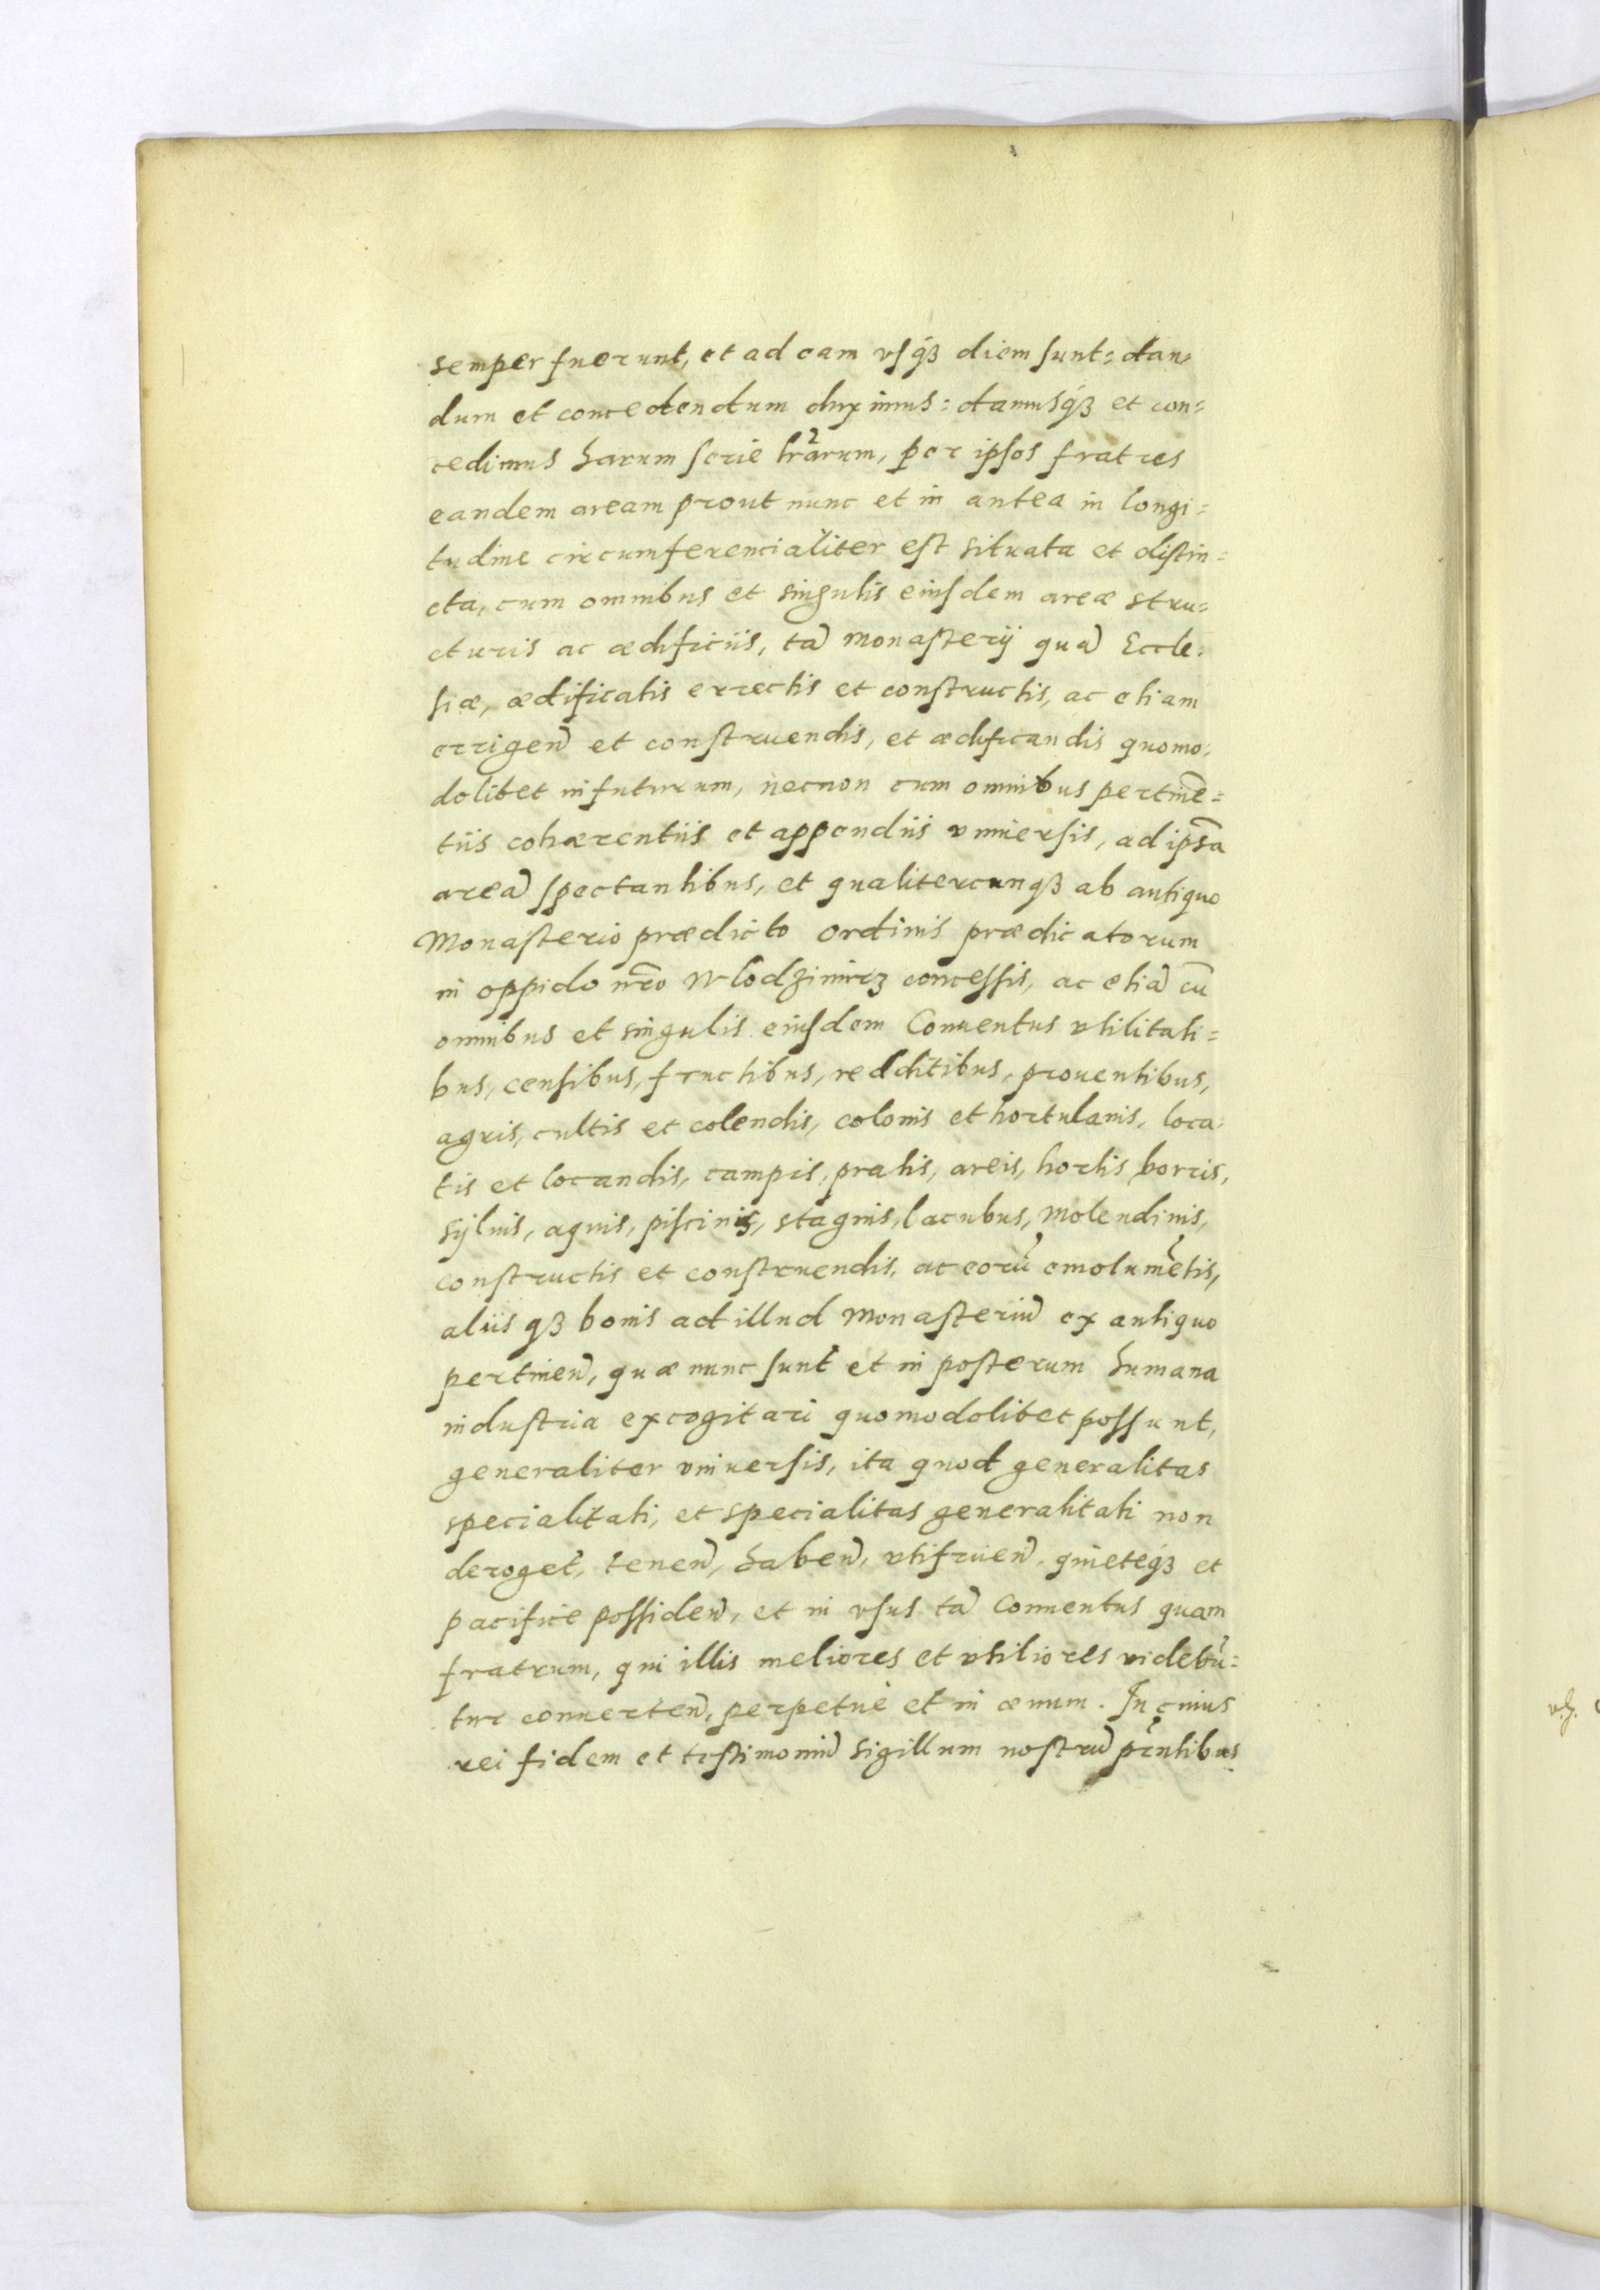 semper fuerunt, et ad eam vsq́ꝫ diem sunt: dan-
dum et concedendum duximus: damusq́ꝫ et con-
cedimus harum serie lr̃arum, per ipsos fratres
eandem aream prout nunc et in antea in longi-
tudine circumferencialiter est situata et distin-
cta, cum omnibus et singulis eiusdem areæ stru-
cturis ac ædificiis, tã Monasterij quã Eccle-
siæ, ædificatis errectis et constructis, ac etiam
errigeñ et construendis, et ædificandis quomo-
dolibet in futurum, necnon cum omnibus pertinẽ-
tiis cohærentiis et appendiis vniuersis, ad ipsã
areã spectantibus, et qualitercunqꝫ ab antiquo
Monasterio prædicto ordinis prædicatorum
in oppido nr̃o Wlodzimirz concessis, ac etiã cũ
omnibus et singulis eiusdem Conuentus vtilitati-
bus, censibus, fructibus, redditibus, prouentibus,
agris, cultis et colendis, colonis et hortulanis, loca-
tis et locandis, campis, pratis, areis, hortis borris,
syluis, aquis, piscinis, stagnis, lacubus, Molendinis,
constructis et construendis, ac eorũ emolumẽtis,
aliis qꝫ bonis ad illud Monasteriũ ex antiquo
pertineñ, quæ nunc sunt et in posterum humana
industria excogitari quomodolibet possunt,
generaliter vniuersis, ita quod generalitas
specialitati, et specialitas generalitati non
deroget, teneñ, habeñ, vtifrueñ, quieteq́ꝫ et
pacifice possideñ, et in vsus tã Conuentus quam
fratrum, qui illis meliores et vtiliores videbũ-
tur conuerteñ, perpetuè et in æuum. In cuius
rei fidem et testimoniũ sigillum nostrũ pr̃ntibus